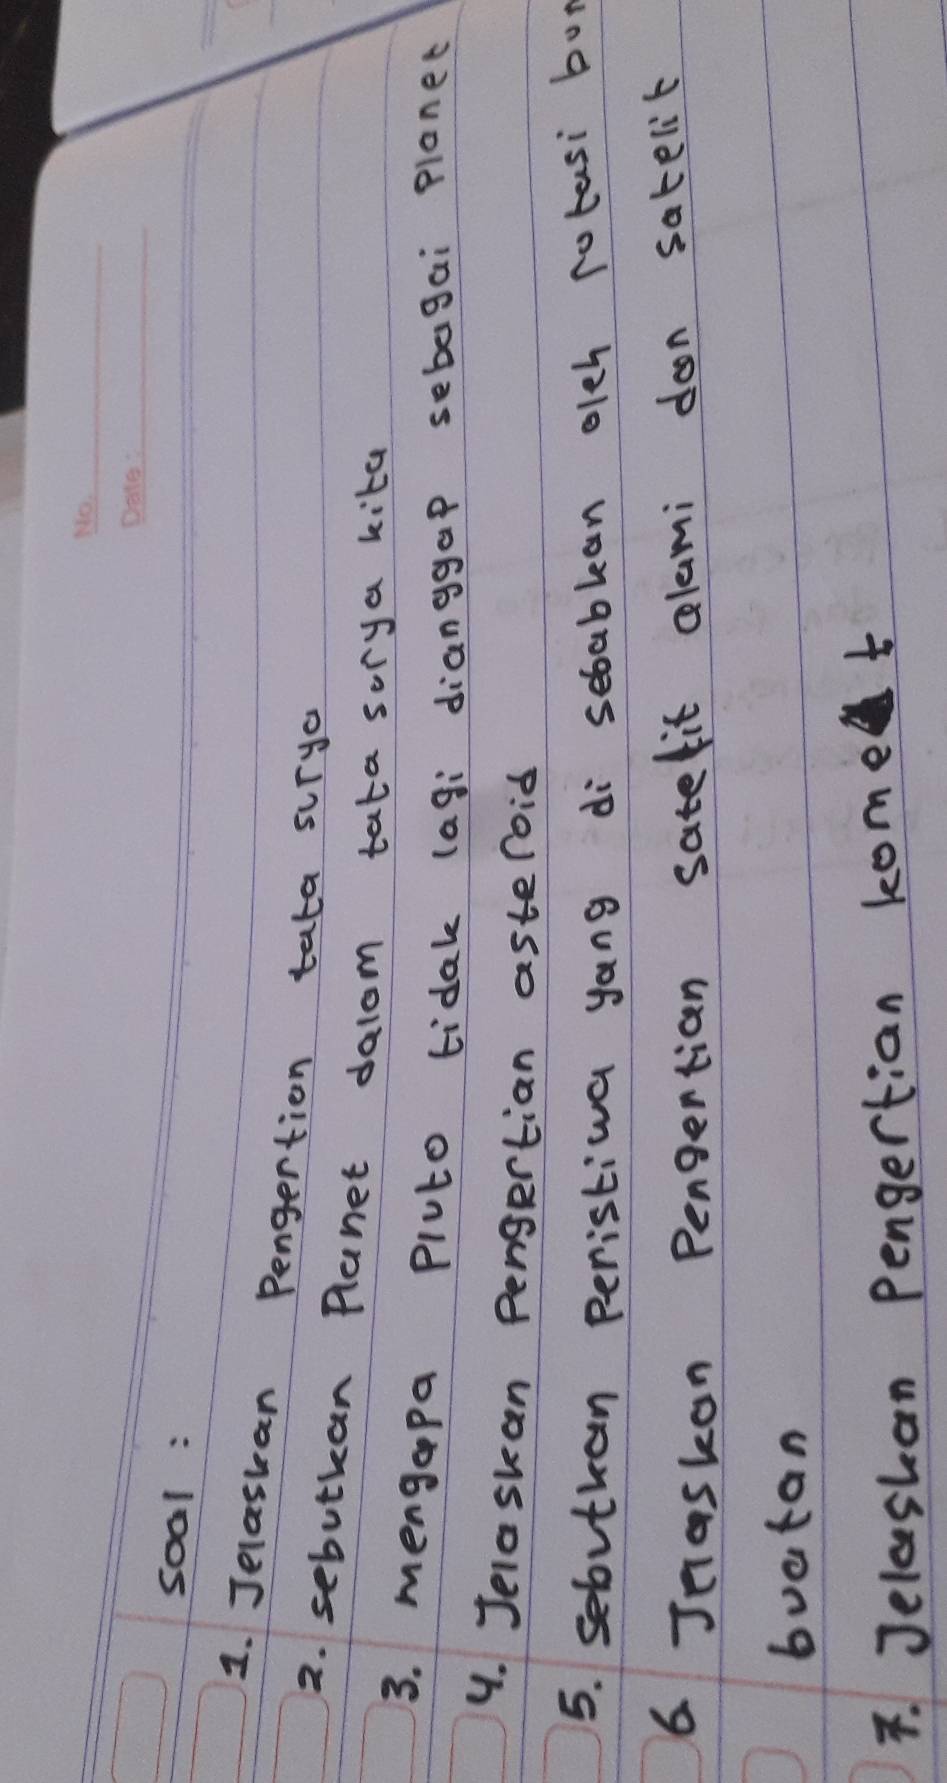 No.
Date:
Soal :
1. Jelaskan Pengertian tata surya
2. sebutkan Planet dalam tata surya kita
3. mengapa Pluto tidak lagi dianggap sebagai Planet
4. Jelaskan Pengertian asteroid
5. Sebutkan Peristiwa yang di sebabkan oleh rotasi bum
6 Jelaskan Pengertian satelit alami dan satelit
buatan
7. Jelaskan Pengertian komet